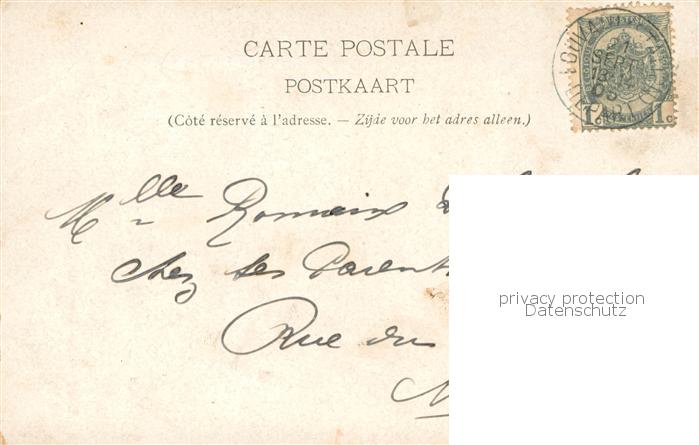 CARTE POSTALE
POSTKAART
(Côté réservé à l'adresse. — Zijde voor het adres alleen.)
1
SEPT
1c 1c
Mlle Romaix
chez ses Parent
Rue du
privacy protection
Datenschutz